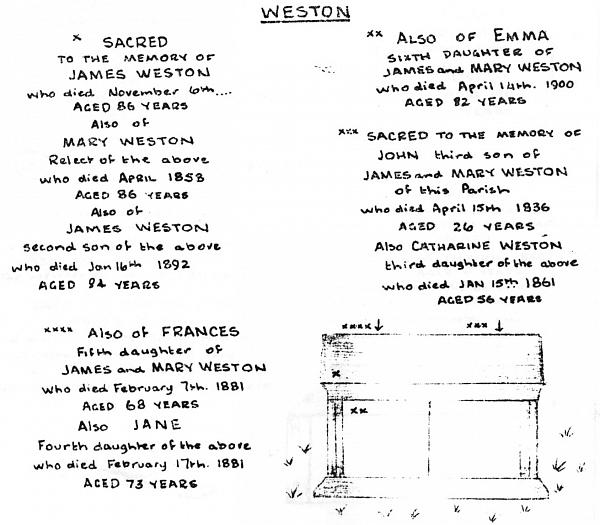 WESTON
* SACRED
TO THE MEMORY OF
JAMES WESTON
who died November 6th....
AGED 86 YEARS
Also of
MARY WESTON
Relect of the above
who died APRIL 1853
AGED 86 YEARS
Also of
JAMES WESTON
second son of the above
who died Jan 16th 1892
AGED 84 YEARS
** ALSO OF EMMA
SIXTH DAUGHTER OF
JAMES and MARY WESTON
who died April 14th. 1900
AGED 82 YEARS
*** SACRED TO THE MEMORY OF
JOHN third son of
JAMES and MARY WESTON
of this Parish
who died April 15th 1836
AGED 26 YEARS
Also CATHARINE WESTON
third daughter of the above
who died JAN 15th 1861
AGED 56 YEARS
**** Also of FRANCES
Fifth daughter of
JAMES and MARY WESTON
who died February 7th. 1881
AGED 68 YEARS
Also JANE
Fourth daughter of the above
who died February 17th. 1881
AGED 73 YEARS
**** ↓ *** ↓
*
**